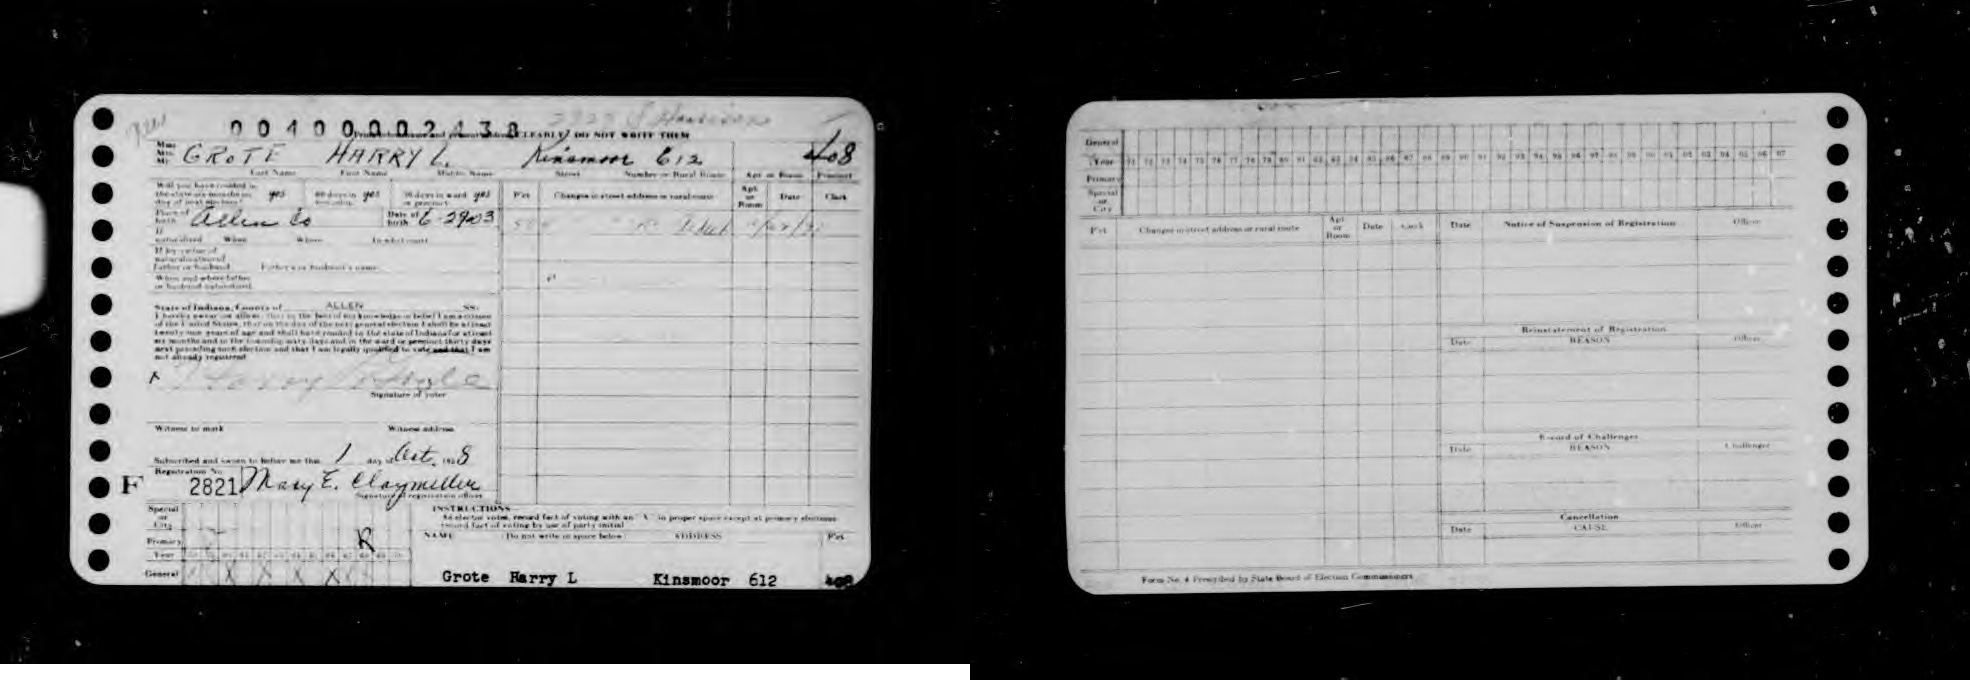 00400002438
CLEARLY DO NOT WRITE THEM
GROTE HARRY L. Kinsmoor 612 408
Last Name First Name Middle Name Street Number or Rural Route Apt or Room Precinct
Will you have resided in
the state six months on yes 60 days in yes 30 days in ward yes
day of next election? township or precinct
P'ct Changes in street address or rural route Apt or Room Date Clerk
Place of birth Allen Co Date of birth 6-29-03
If
naturalized When Where In what court
If by virtue of
naturalization of
father or husband Father's or husband's name
When and where father
or husband naturalized
State of Indiana, County of ALLEN SS:
I hereby swear (or affirm) that to the best of my knowledge or belief I am a citizen
of the United States, that on the day of the next general election I shall be at least
twenty-one years of age and shall have resided in the state of Indiana for at least
six months and in the township sixty days and in the ward or precinct thirty days
next preceding such election and that I am legally qualified to vote and that I am
not already registered
Signature of voter
Witness to mark Witness address
Subscribed and sworn to before me this 1 day of Oct. 1958
Registration No.
F 2821 Mary E. Claymiller
Signature of registration officer
Special
or
City
Primary R
Year
General X X X X
INSTRUCTIONS
At elector votes, record fact of voting with an "X" in proper space except at primary elections
record fact of voting by use of party initial
NAME (Do not write in space below) ADDRESS P'ct
Grote Harry L Kinsmoor 612 408
General
Year 71 72 73 74 75 76 77 78 79 80 81 82 83 84 85 86 87 88 89 90 91 92 93 94 95 96 97 98 99 00 01 02 03 04 05 06 07
Primary
Special
or
City
P'ct Changes in street address or rural route Apt or Room Date Clerk
Date Notice of Suspension of Registration Officer
Reinstatement of Registration
Date REASON Officer
Record of Challenges
Date REASON Challenger
Cancellation
Date CAUSE Officer
Form No. 4 Prescribed by State Board of Election Commissioners